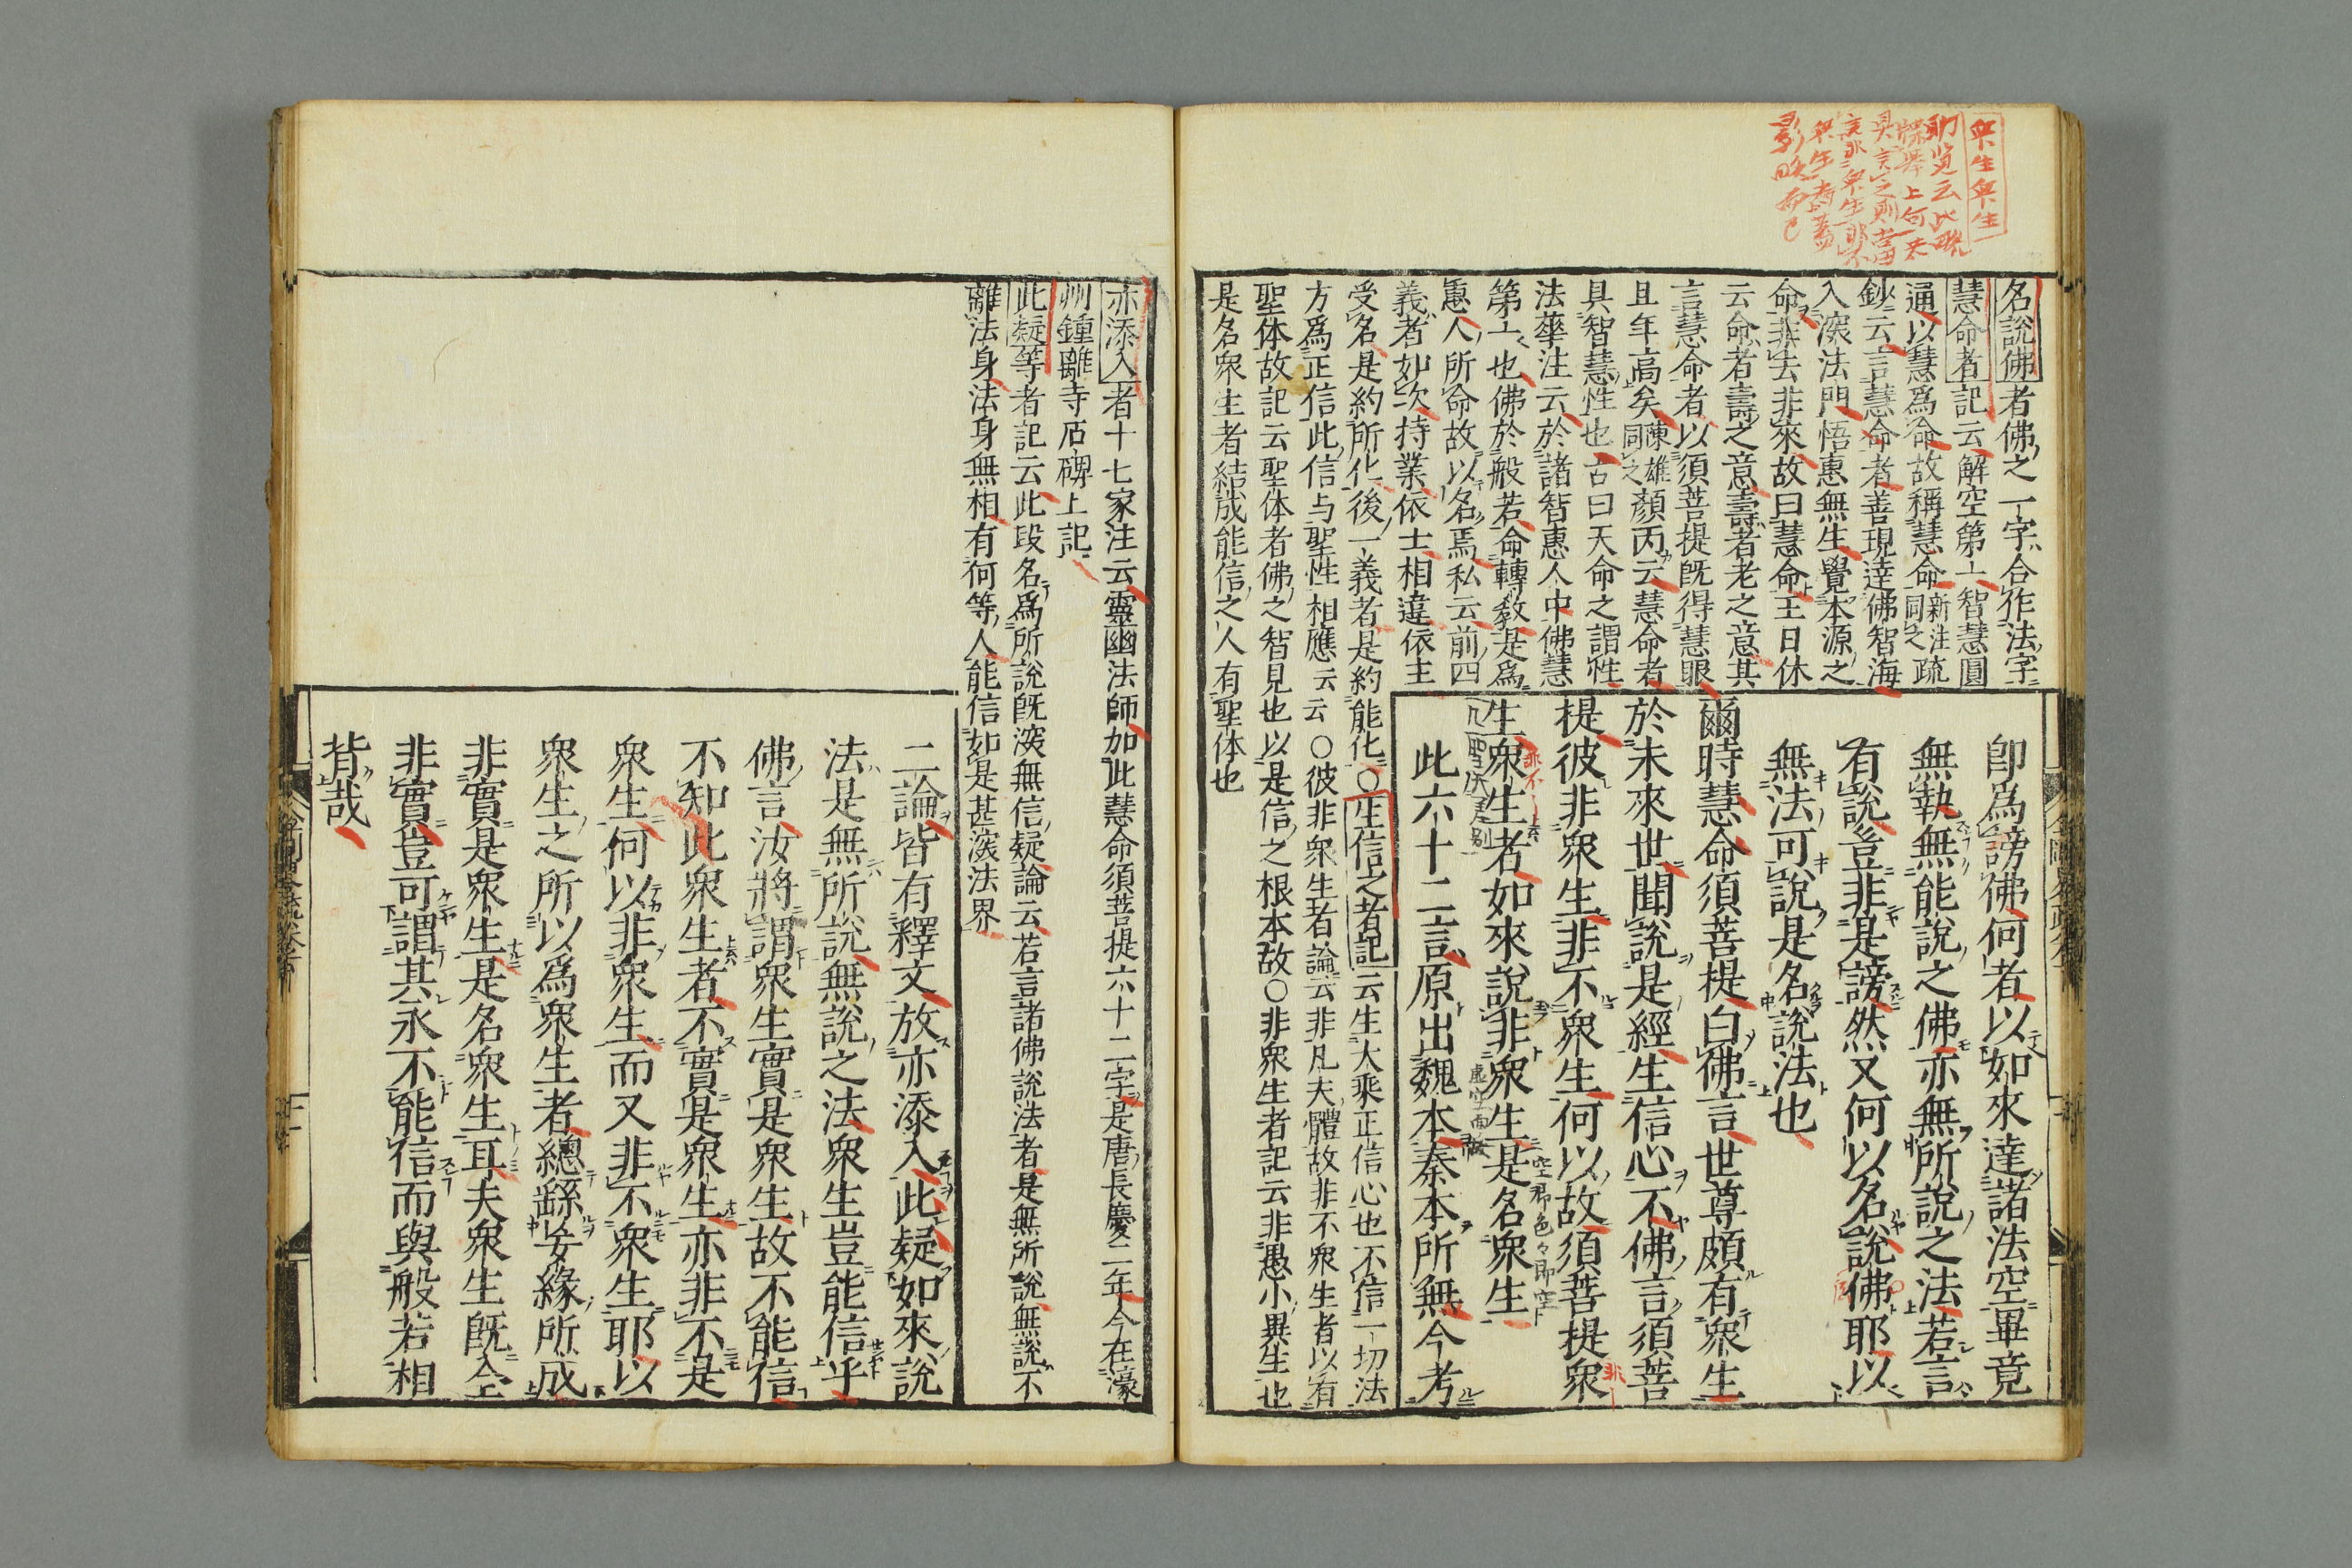 衆生衆生
名說佛者佛之一字合作法字
慧命者記云解空第一智慧圓
通以慧爲命故稱慧命新注疏同之
鈔云言慧命者善現達佛智海
入深法門悟惠無生覺本源之
命非去非來故曰慧命王日休
云命者壽之意壽者老之意其
言慧命者以須菩提既得慧眼
且年高矣陳雄同之顏丙云慧命者
具智慧性也古曰天命之謂性
法華注云於諸智惠人中佛慧
第一也佛於般若命轉教是爲
惠人所命故以名焉私云前四
義者如次持業依士相違依主
受名是約所化後一義者是約能化○生信之者記云生大乘正信心也不信一切法
方爲正信此信与聖性相應云云○彼非衆生者論云非凡夫體故非不衆生者以有
聖体故記云聖体者佛之智見也以是信之根本故○非衆生者記云非愚小異生也
是名衆生者結成能信之人有聖体也
卽爲謗佛何者以如來達諸法空畢竟
無執無能說之佛亦無所說之法若言
有說豈非是謗然又何以名說佛耶以
無法可說是名說法也
爾時慧命須菩提白佛言世尊頗有衆生
於未來世聞說是經生信心不佛言須菩
提彼非衆生非不衆生何以故須菩提衆
生衆生者如來說非衆生是名衆生
此六十二言原出魏本秦本所無今考
亦添入者十七家注云靈幽法師加此慧命須菩提六十二字是唐長慶二年今在濠
州鍾離寺石碑上記
此疑等者記云此段名爲所說既深無信疑論云若言諸佛說法者是無所說無說不
離法身法身無相有何等人能信如是甚深法界
二論皆有釋文放亦添入此疑如來說
法是無所說無說之法衆生豈能信乎
佛言汝將謂衆生實是衆生故不能信
不知此衆生者不實是衆生亦非不是
衆生何以非衆生而又非不衆生耶以
衆生之所以爲衆生者總繇妄緣所成
非實是衆生是名衆生耳夫衆生既全
非實豈可謂其永不能信而與般若相
背哉